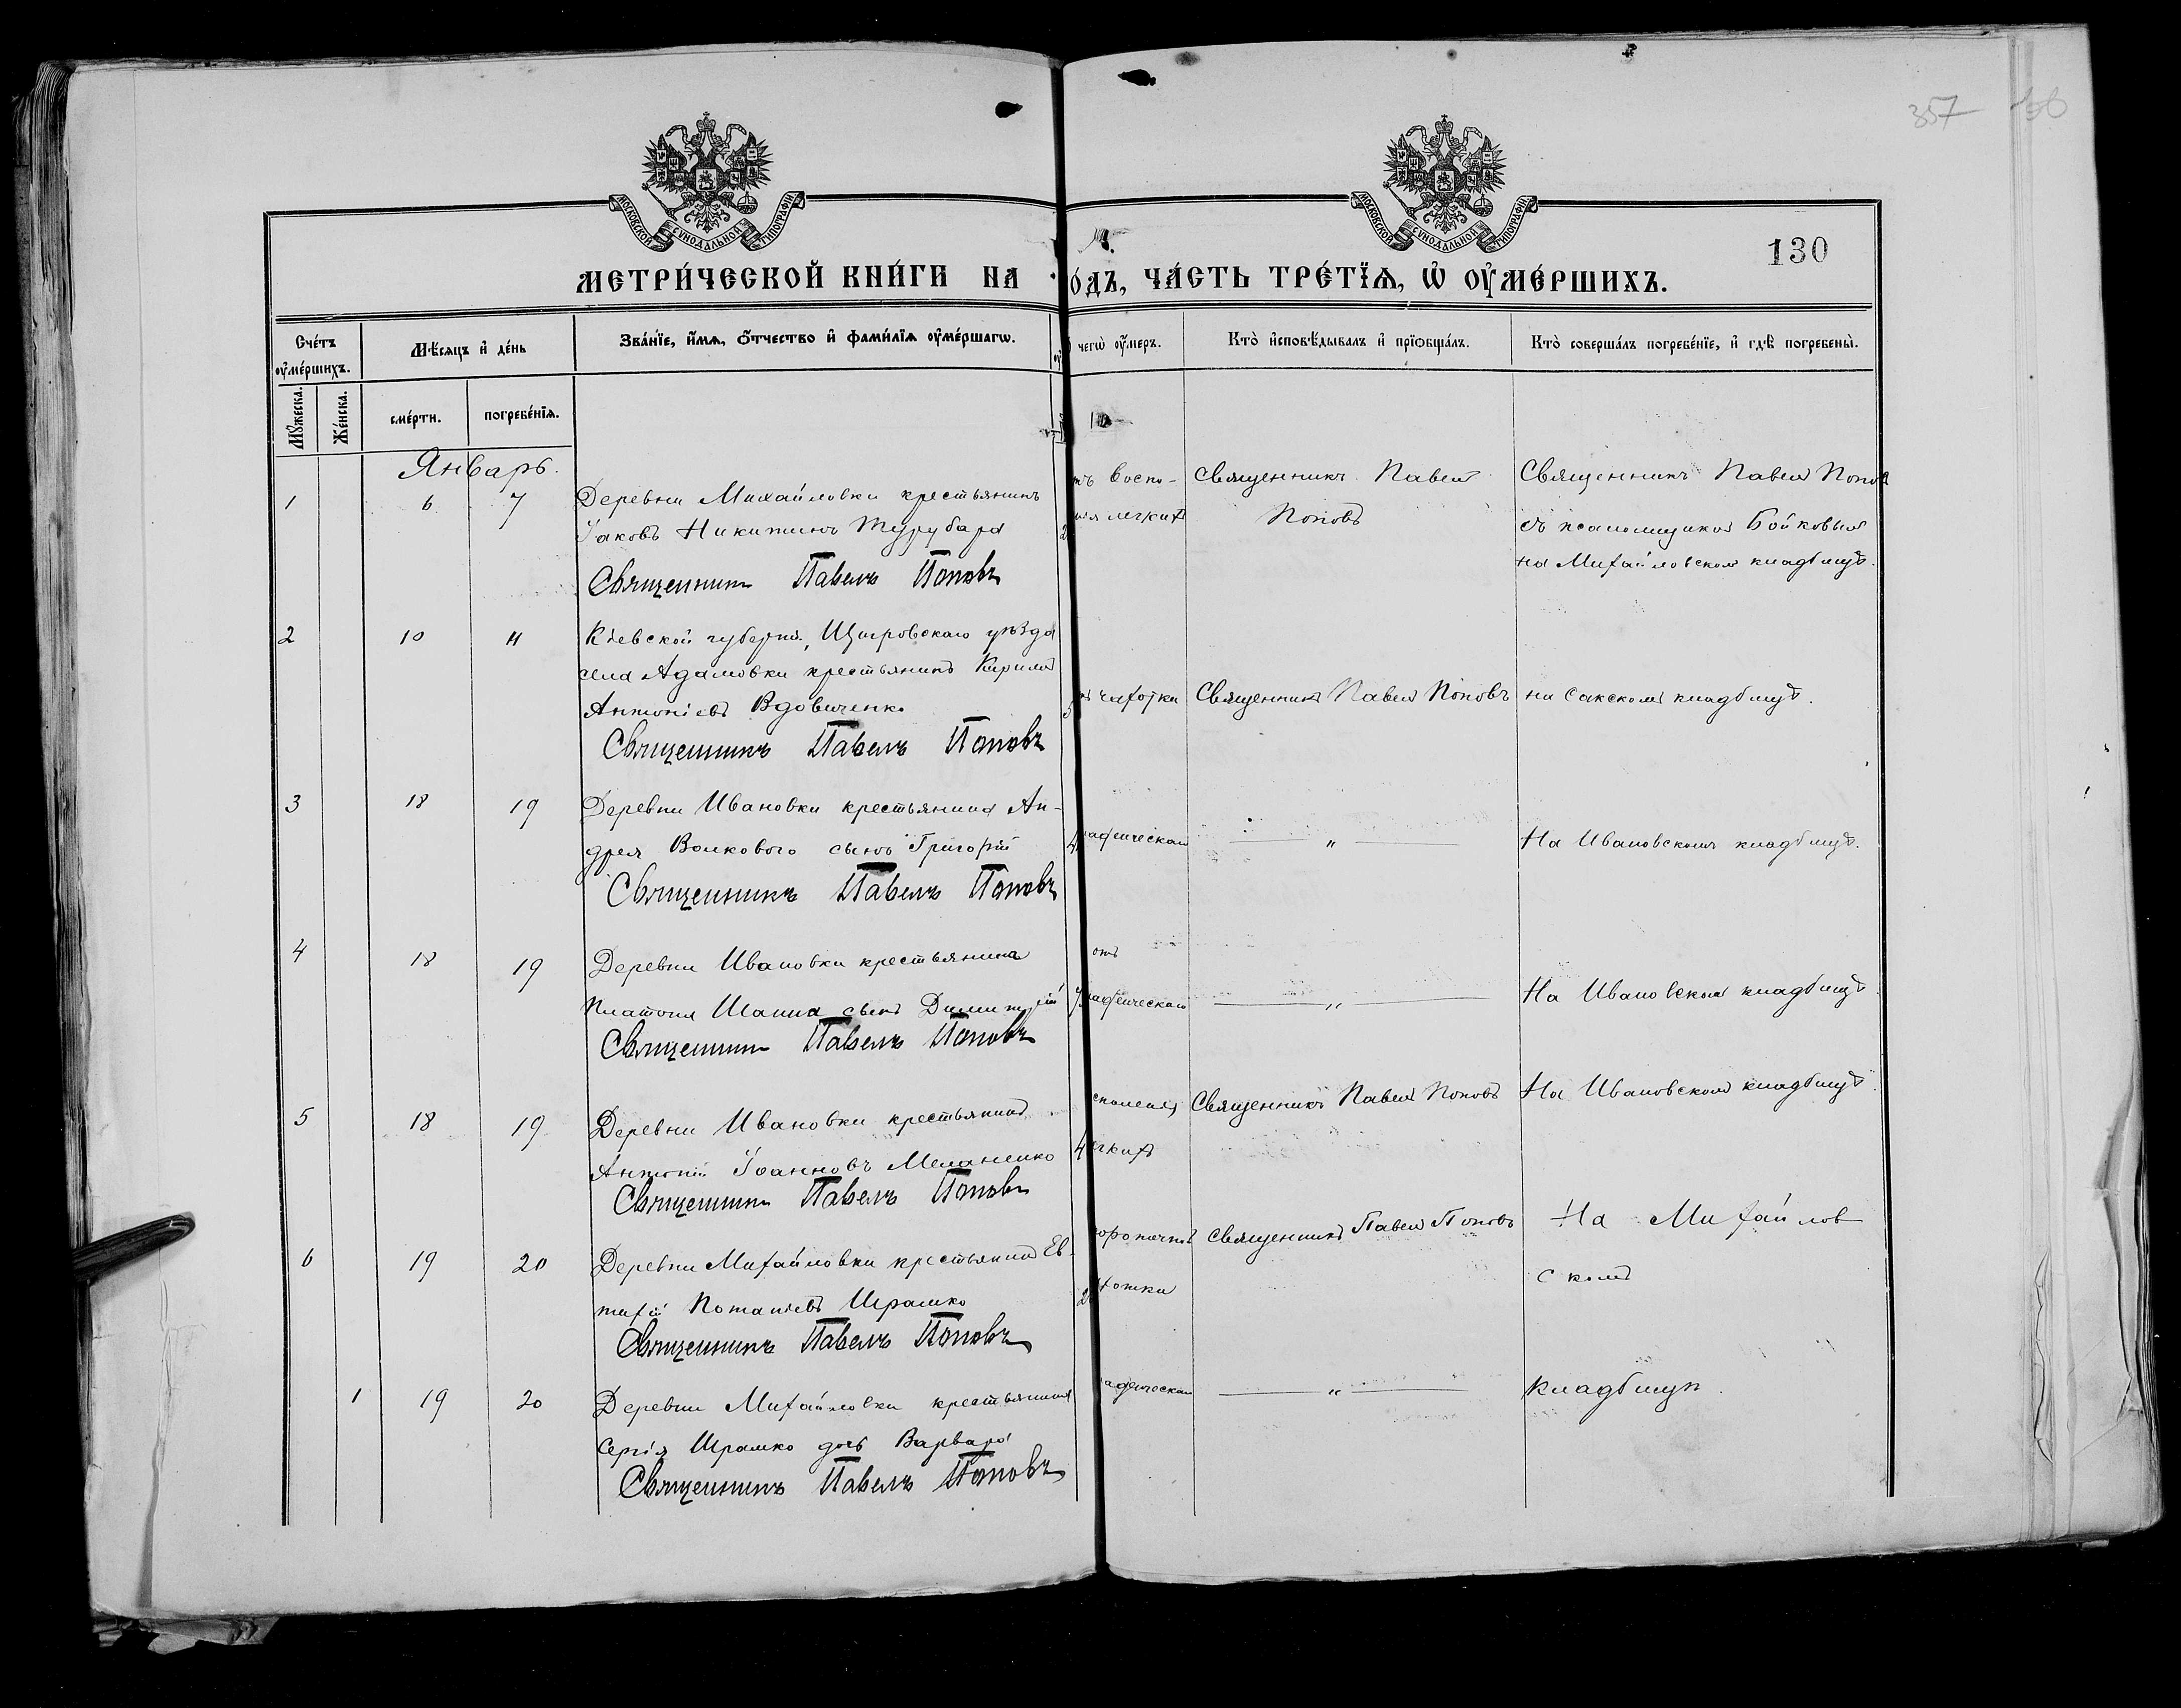 357
130
МОСКОВСКОЙ СѴНОДАЛЬНОЙ ТИПОГРАФІИ
МОСКОВСКОЙ СѴНОДАЛЬНОЙ ТИПОГРАФІИ
МЕТРИ́ЧЕСКОЙ КНИ́ГИ НА
О́ДЪ, ЧА́СТЬ ТРЕ́ТЇѦ, Ѡ҆ ОУ҆МЕ́РШИХЪ.
Сче́тъ оу҆ме́ршихъ.
Мѣ́сяцъ и҆ де́нь
Зва́нїе, и҆́мѧ, ѻ҆́тчество и҆ фами́лїѧ оу҆ме́ршагѡ.
чегѡ̀ оу҆́меръ.
Кто̀ и҆сповѣ́дывалъ и҆ прїѡбща́лъ.
Кто̀ соверша́лъ погребе́нїе, и҆ гдѣ̀ погребены̀.
Мꙋ́жеска.
Же́нска.
сме́рти.
погребе́нїѧ.
Январь.
1 6 7 Деревни Михайловки крестьянинъ
Іаковъ Никитинъ Турубара
Священникъ Павелъ Поповъ
воспо-
легкихъ
Священникъ Павелъ
Поповъ
Священникъ Павелъ Поповъ
съ псаломщикомъ Бойковымъ
на Михайловскомъ кладбищѣ.
2 10 11 Кіевской губерніи, уѣзда
села Адамовки крестьянинъ Кирилъ
Антоніевъ Вдовиченко
Священникъ Павелъ Поповъ
чахотки
Священникъ Павелъ Поповъ
на Сакскомъ кладбищѣ.
3 18 19 Деревни Ивановки крестьянина Ан-
дрея Волкового сынъ Григорій
Священникъ Павелъ Поповъ
4
"
На Ивановскомъ кладбищѣ.
4 18 19 Деревни Ивановки крестьянина
Платона Шапка сынъ Димитрій
Священникъ Павелъ Поповъ
отъ
"
На Ивановскомъ кладбищѣ
5 18 19 Деревни Ивановки крестьянинъ
Антоній Іоанновъ Меланенко
Священникъ Павелъ Поповъ
4
Священникъ Павелъ Поповъ
На Ивановскомъ кладбищѣ
6 19 20 Деревни Михайловки крестьянинъ Ев-
тихій Потапіевъ Шрамко
Священникъ Павелъ Поповъ
Священникъ Павелъ Поповъ
На Михайлов
скомъ
1 19 20 Деревни Михайловки крестьянина
Сергія Шрамко дочь Варвара
Священникъ Павелъ Поповъ
"
кладбищѣ